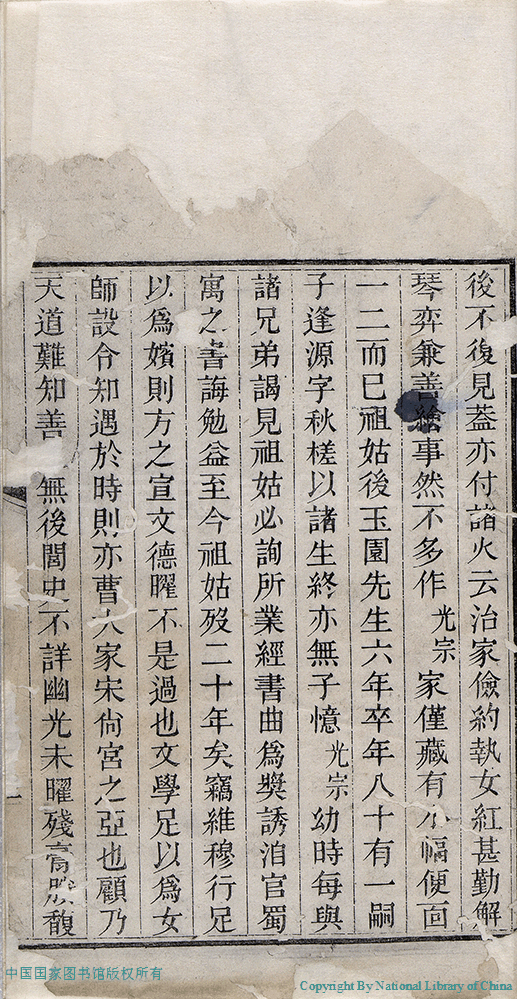 後不復見蓋亦付諸火云治家儉約執女紅甚勤解
琴弈兼善繪事然不多作光宗家僅藏有小幅便面
一二而已祖姑後玉園先生六年卒年八十有一嗣
子逢源字秋槎以諸生終亦無子憶光宗幼時每與
諸兄弟謁見祖姑必詢所業經書曲爲奬誘洎官蜀
寓之書誨勉益至今祖姑歿二十年矣竊維穆行足
以爲嬪則方之宣文德曜不是過也文學足以爲女
師設令知遇於時則亦曹大家宋尙宮之亞也顧乃
天道難知善無後閨史不詳幽光未曜殘膏賸馥
一
中国国家图书馆版权所有
Copyright By National Library of China